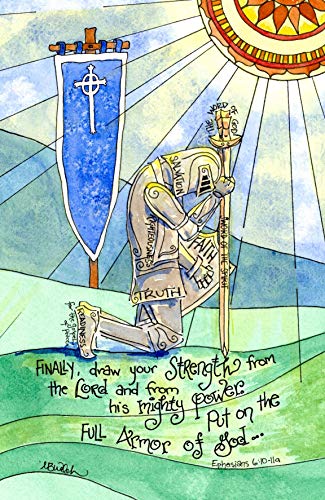 THE WORD OF GOD
SALVATION
RIGHTEOUSNESS
FAITH
SWORD OF THE SPIRIT
TRUTH
READINESS
FINALLY, draw your Strength from
the Lord and from
his mighty power.
Put on the
FULL Armor of God...
Ephesians 6:10-11a